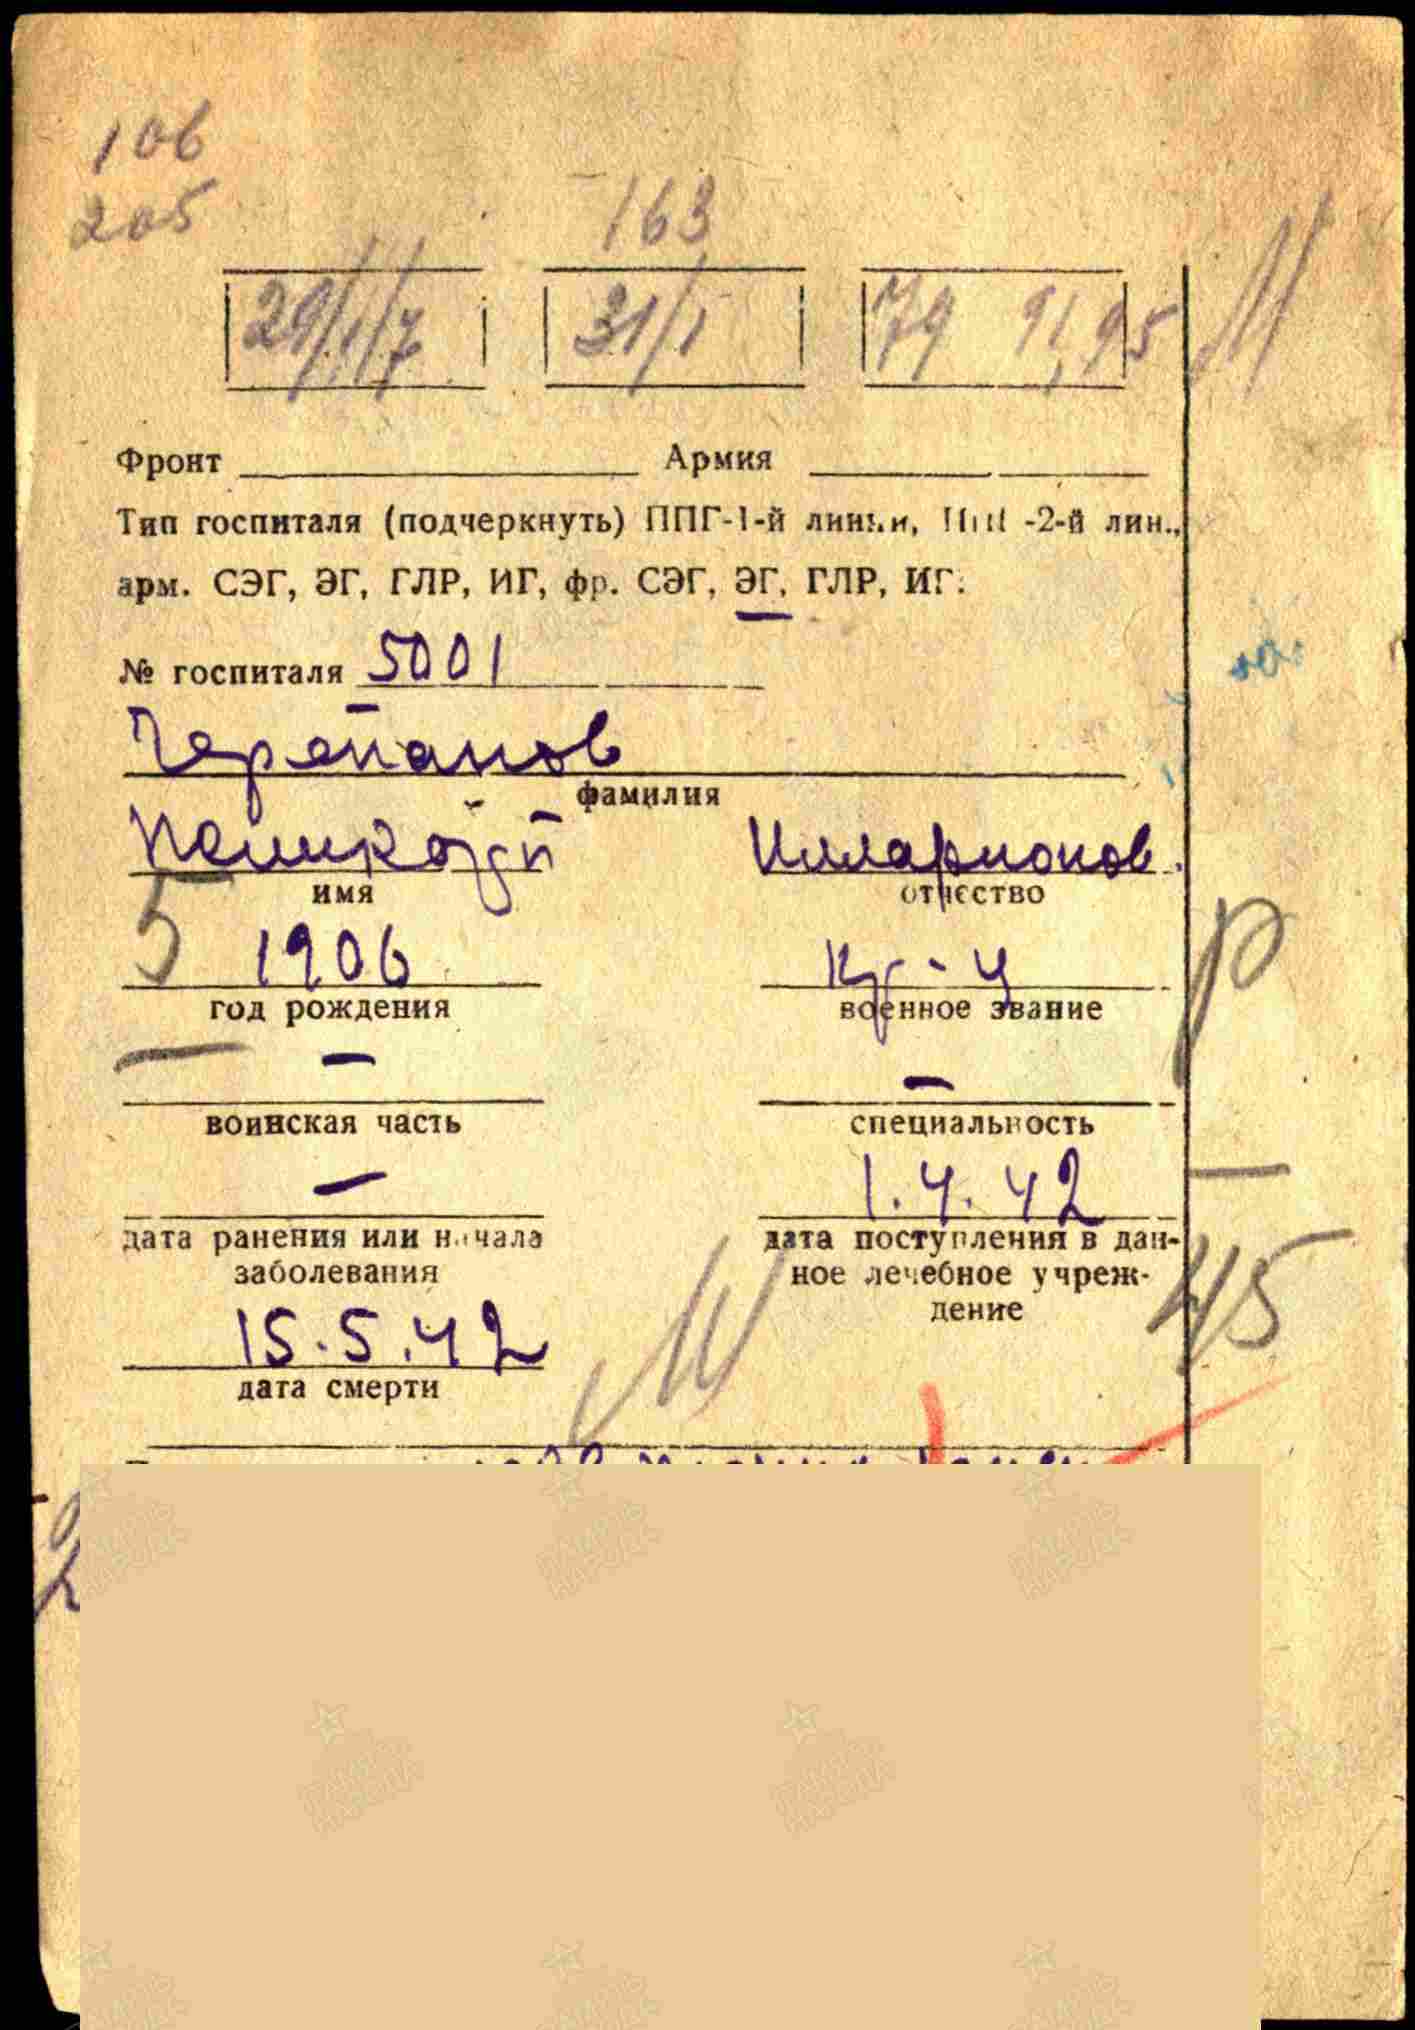 106
205
163
29/I/7 31/I 79 91,95
Фронт Армия
Тип госпиталя (подчеркнуть) ППГ-1-й линии, -2-й лин.,
арм. СЭГ, ЭГ, ГЛР, ИГ, фр. СЭГ, ЭГ, ГЛР, ИГ.
№ госпиталя 5001
Черепанов
фамилия
Илларионов.
имя отчество
5 1906 кр-ц
год рождения военное звание
— — —
воинская часть специальность
— 1.4.42 —
дата ранения или начала дата поступления в дан-
заболевания ное лечебное учреж-
дение 45
15.5.42
дата смерти